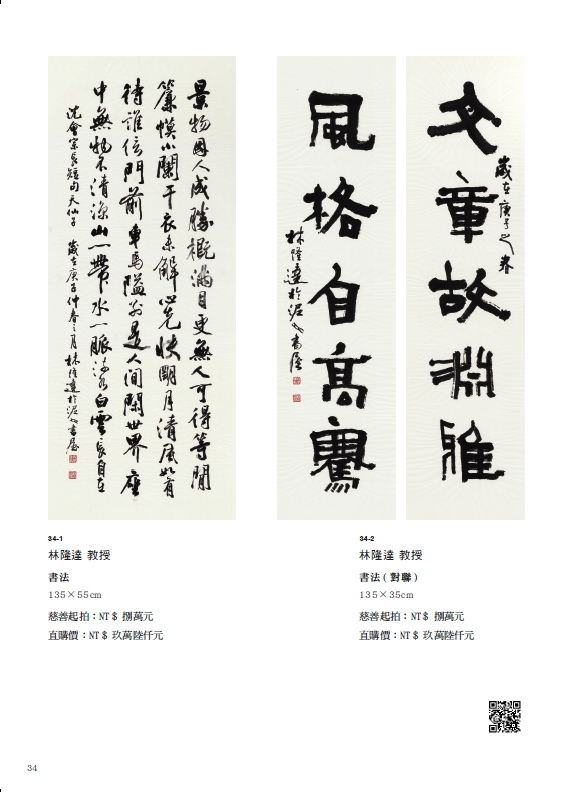 景物因人成勝概滿目更無人可得等閒
簾幕小闌干衣未解心先快明月清風如有
待誰信門前車馬隘別是人間閒世界座
中無物不清涼山一帶水一脈流水白雲長自在
沈會宗長短句天仙子 歲在庚子仲春之月林隆達於書屋
歲在庚子之春
文章故淵雅
風格自高騫
林隆達於書屋
34-1
林隆達 教授
書法
135×55cm
慈善起拍：NT$ 捌萬元
直購價：NT$ 玖萬陸仟元
34-2
林隆達 教授
書法(對聯)
135×35cm
慈善起拍：NT$ 捌萬元
直購價：NT$ 玖萬陸仟元
34